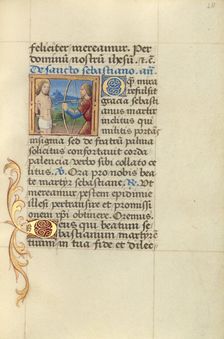 feliciter mereamur. Per
dominū nostrū ihesū. ⁊c.
De sancto sebastiano. añ.
mira
refulsit
gracia sebasti
anus martir
inclitus qui
militis portās
insignia sed de fratrū palma
solicitus confortauit corda
palencia verbo sibi collato ce
litus. V. Ora pro nobis beate
martyr sebastiane. R. Vt
mereamur pestem epidimie
illesi pertransire et promissi
onem xp̄i obtinere. Oremus.
Deus qui beatum se
bastianum martyrē
tuum in tua fide et dilec